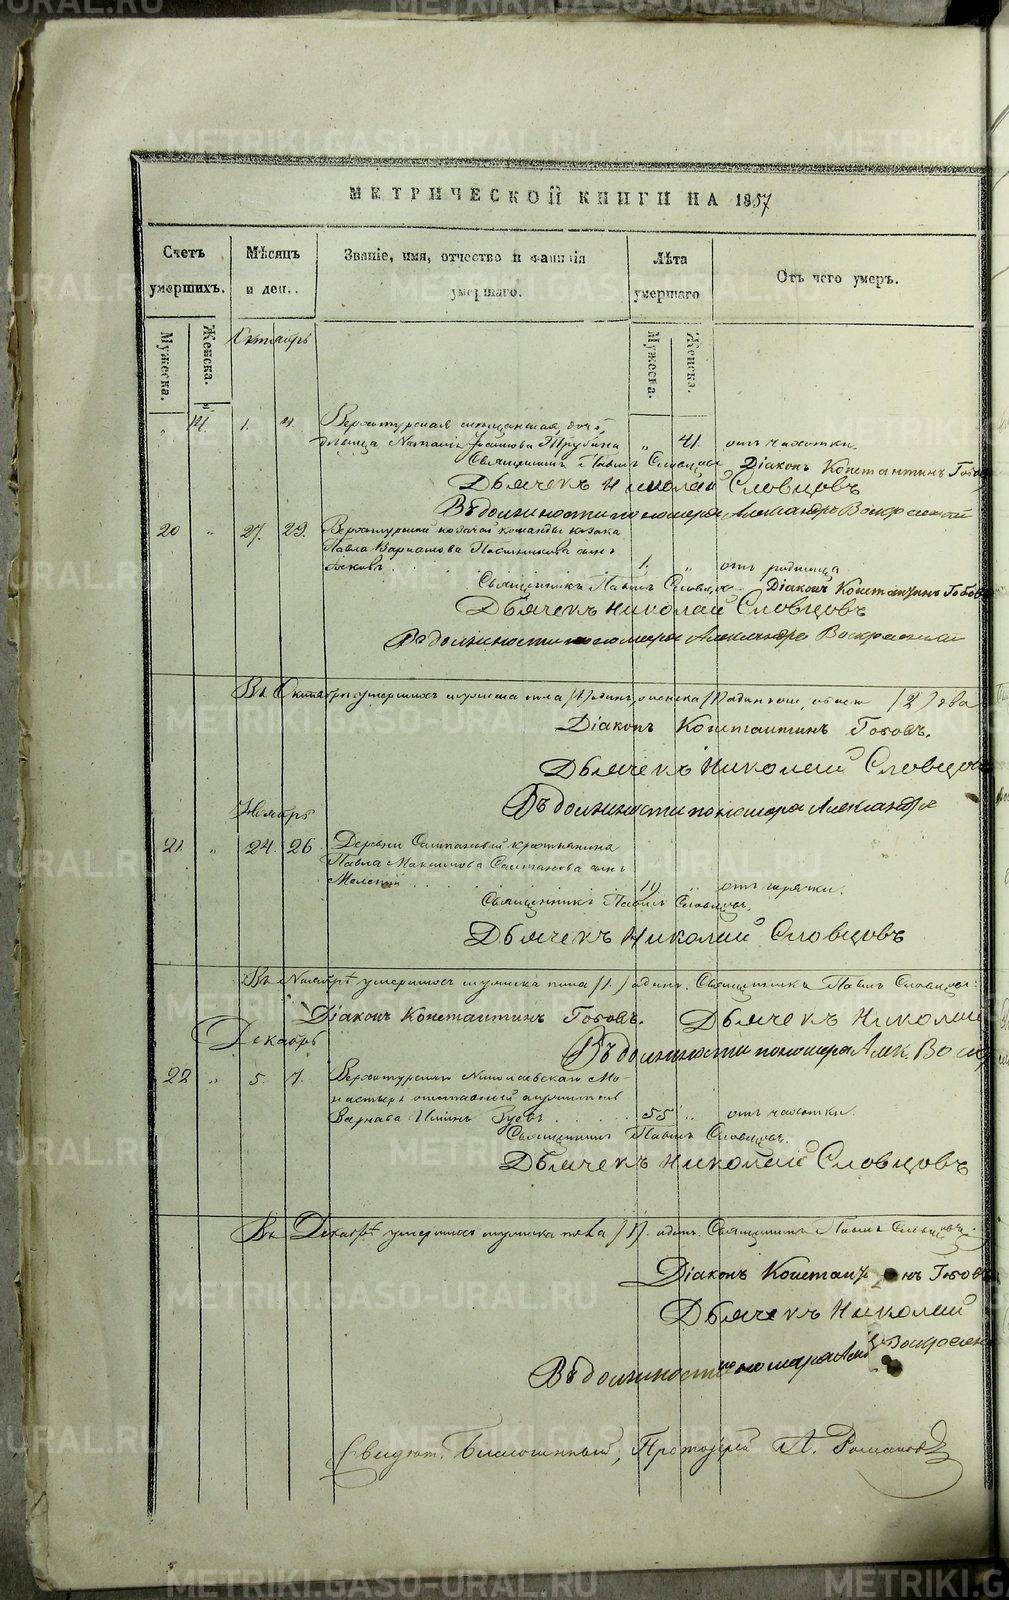 МЕТРИЧЕСКОЙ КНИГИ НА 1857
Счетъ умершихъ.
Мѣсяцъ и ден..
Званіе, имя, отчество и фамилія умершаго.
Лѣта умершаго
Отъ чего умеръ.
Мужеска.
Женска.
Октябрь
Мужеска.
Женска.
14. 1. 4. Верхотурская мѣщанская
Наталія Трубина „ 41. отъ чахотки.
Священникъ Павелъ Словцовъ Діаконъ Константинъ Гобовъ
Дьячекъ Николай Словцовъ
Въ должности пономаря Александръ Воскресенской
20 „ 27. 29. Верхотурской казачей команды казака
Павла Постникова сынъ
Іаковъ 1. „ отъ родимца
Священникъ Павелъ Словцовъ. Діаконъ Константинъ Гобовъ
Дьячекъ Николай Словцовъ
Въ должности пономаря Александръ Воскресенский
Въ Октябрѣ умершихъ мужеска пола /1/ одинъ, женска /1/ одна /2/ два
Діаконъ Константинъ Гобовъ.
Дьячекъ Николай Словцовъ
Въ должности пономаря Александръ
Ноябрь
21 „ 24. 26. Деревни крестьянина
Павла Максимова сынъ
отъ горячки.
Священникъ Павелъ Словцовъ.
Дьячекъ Николай Словцовъ
Въ Ноябрѣ умершихъ мужеска пола /1./ одинъ. Священникъ Павелъ Словцовъ:
Діаконъ Константинъ Гобовъ. Дьячекъ Николай
Въ должности пономаря Алек. Воскр
Декабрь
22 „ 5. 7. Верхотурскаго Николаевскаго Мо-
настыря
Варнава 55 „ отъ чахотки.
Священникъ Павелъ Словцовъ.
Дьячекъ Николай Словцовъ
Въ Декабрѣ умершихъ мужеска пола /1/. одинъ. Священникъ Павелъ Словцовъ.
Діаконъ Константинъ Гобовъ
Дьячекъ Николай
Въ должности пономаря Воскресен
Свидѣт. Благочинный, Протоіерей А. Романовъ
METRIKI.GASO-URAL.RU